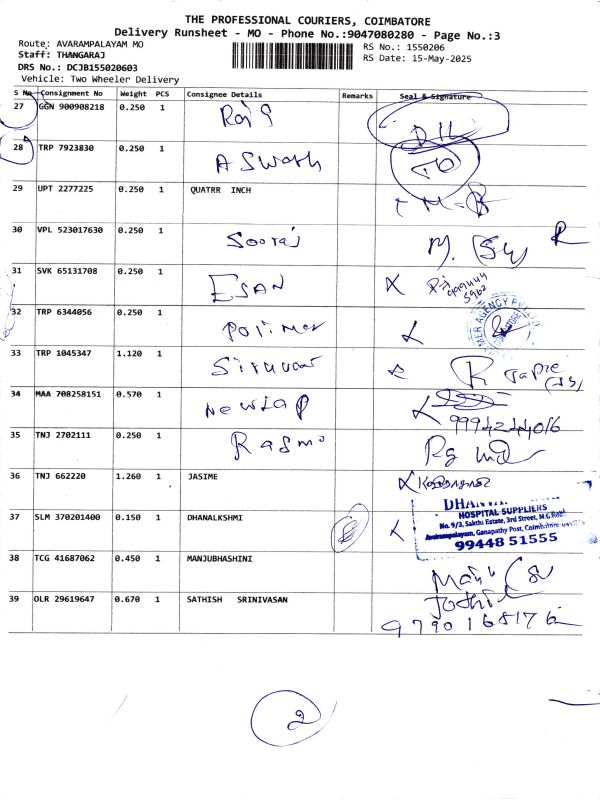 THE PROFESSIONAL COURIERS, COIMBATORE
Delivery Runsheet - MO - Phone No.:9047080280 - Page No.:3
Route: AVARAMPALAYAM MO
RS No.: 1550206
Staff: THANGARAJ
RS Date: 15-May-2025
DRS No.: DCJB155020603
Vehicle: Two Wheeler Delivery
S No Consignment No Weight PCS Consignee Details Remarks Seal & Signature
27 GGN 900908218 0.250 1
28 TRP 7923830 0.250 1 Aswath
29 UPT 2277225 0.250 1 QUATRR INCH
30 VPL 523017630 0.250 1 Sooraj
31 SVK 65131708 0.250 1 ESAN
32 TRP 6344056 0.250 1 Polimer
33 TRP 1045347 1.120 1
34 MAA 708258151 0.570 1 Newlap
35 TNJ 2702111 0.250 1
36 TNJ 662220 1.260 1 JASIME
37 SLM 370201400 0.150 1 DHANALKSHMI
HOSPITAL SUPPLIERS
No. 9/3, Sakthi Estate, 3rd Street, M.G.Road
Avarampalayam, Ganapathy Post, Coimbatore
99448 51555
38 TCG 41687062 0.450 1 MANJUBHASHINI
39 OLR 29619647 0.670 1 SATHISH SRINIVASAN
9790168176
2